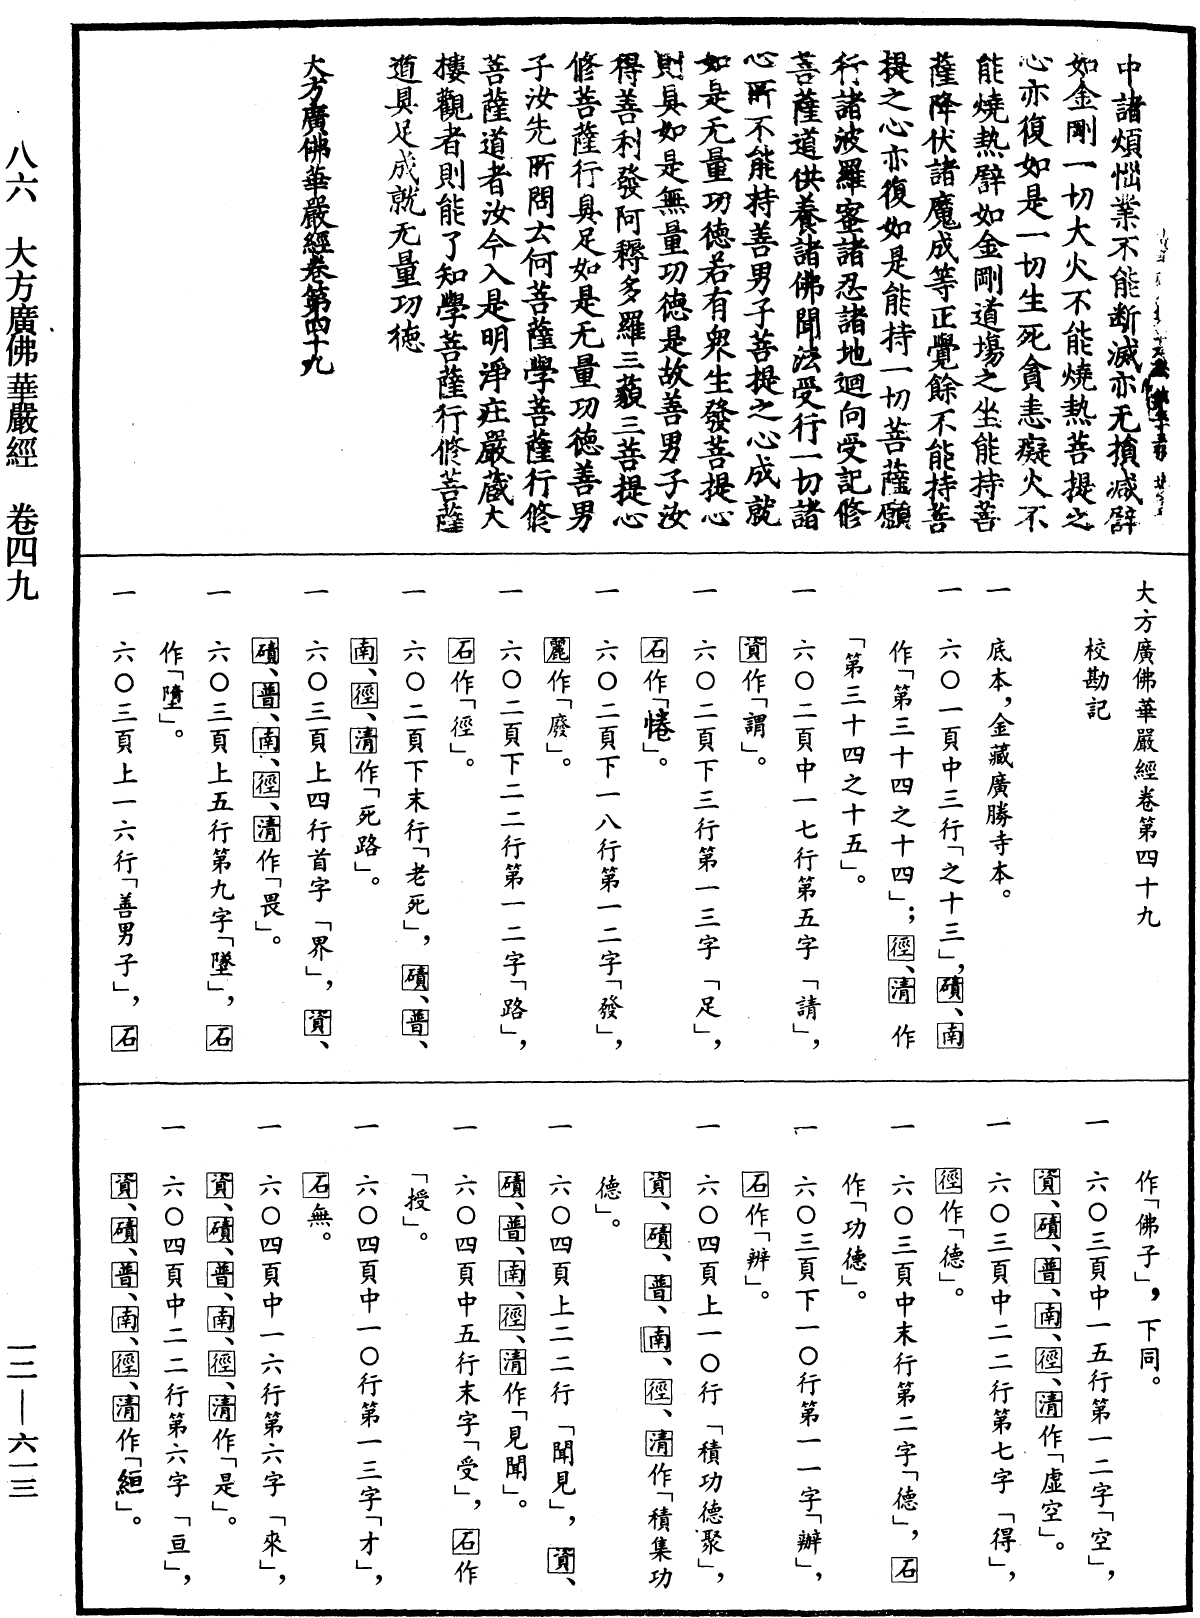 中諸煩惱業不能斷滅亦无損減譬
如金剛一切大火不能燒熱菩提之
心亦復如是一切生死貪恚癡火不
能燒熱譬如金剛道場之坐能持菩
薩降伏諸魔成等正覺餘不能持菩
提之心亦復如是能持一切菩薩願
行諸波羅蜜諸忍諸地迴向受記修
菩薩道供養諸佛聞法受行一切諸
心所不能持善男子菩提之心成就
如是无量功德若有衆生發菩提心
則具如是無量功德是故善男子汝
得善利發阿耨多羅三藐三菩提心
修菩薩行具足如是无量功德善男
子汝先所問云何菩薩學菩薩行修
菩薩道者汝今入是明淨庄嚴藏大
樓觀者則能了知學菩薩行修菩薩
道具足成就无量功德
大方廣佛華嚴經卷第四十九
大方廣佛華嚴經卷第四十九
校勘記
一 底本，金藏廣勝寺本。
一 六〇一頁中三行「之十三」，磧、南
作「第三十四之十四」；徑、清 作
「第三十四之十五」。
一 六〇二頁中一七行第五字「請」，
資作「謂」。
一 六〇二頁下三行第一三字「足」，
石作「惓」。
一 六〇二頁下一八行第一二字「發」，
麗作「廢」。
一 六〇二頁下二二行第一二字「路」，
石作「徑」。
一 六〇二頁下末行「老死」，磧、普、
南、徑、清作「死路」。
一 六〇三頁上四行首字「界」，資、
磧、普、南、徑、清作「畏」。
一 六〇三頁上五行第九字「墜」，石
作「墮」。
一 六〇三頁上一六行「善男子」，石
作「佛子」，下同。
一 六〇三頁中一五行第一二字「空」，
資、磧、普、南、徑、清作「虛空」。
一 六〇三頁中二二行第七字「得」，
徑作「德」。
一 六〇三頁中末行第二字「德」，石
作「功德」。
一 六〇三頁下一〇行第一一字「辦」，
石作「辨」。
一 六〇四頁上一〇行「積功德聚」，
資、磧、普、南、徑、清作「積集功
德」。
一 六〇四頁上二二行「聞見」，資、
磧、普、南、徑、清作「見聞」。
一 六〇四頁中五行末字「受」，石作
「授」。
一 六〇四頁中一〇行第一三字「才」，
石無。
一 六〇四頁中一六行第六字「來」，
資、磧、普、南、徑、清作「是」。
一 六〇四頁中二二行第六字「亘」，
資、磧、普、南、徑、清作「絙」。
八六 大方廣佛華嚴經 卷四九
一二—六一三